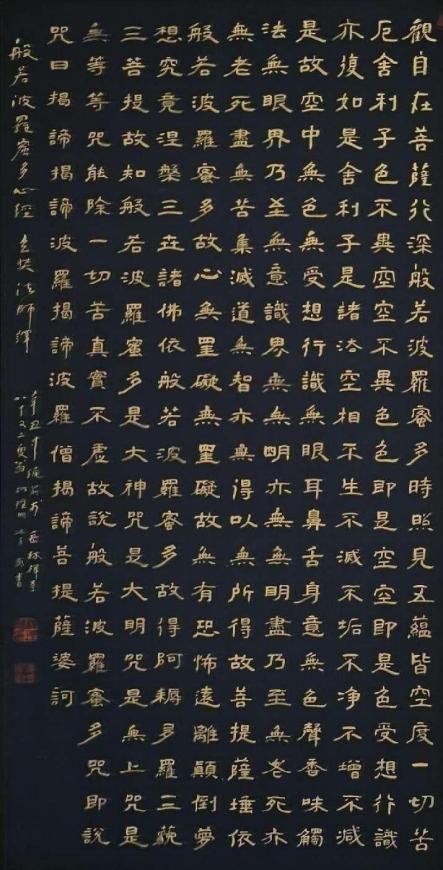 觀自在菩薩行深般若波羅蜜多時照見五蘊皆空度一切苦
厄舍利子色不異空空不異色色即是空空即是色受想行識
亦復如是舍利子是諸法空相不生不滅不垢不净不增不減
是故空中無色無受想行識無眼耳鼻舌身意無色聲香味觸
法無眼界乃至無意識界無無明亦無無明盡乃至無老死亦
無老死盡無苦集滅道無智亦無得以無所得故菩提薩埵依
般若波羅蜜多故心無罣礙無罣礙故無有恐怖遠離顛倒夢
想究竟涅槃三世諸佛依般若波羅蜜多故得阿耨多羅三藐
三菩提故知般若波羅蜜多是大神咒是大明咒是無上咒是
無等等咒能除一切苦真實不虛故說般若波羅蜜多咒即說
咒曰揭諦揭諦波羅揭諦波羅僧揭諦菩提薩婆訶
般若波羅蜜多心經 玄奘法師譯